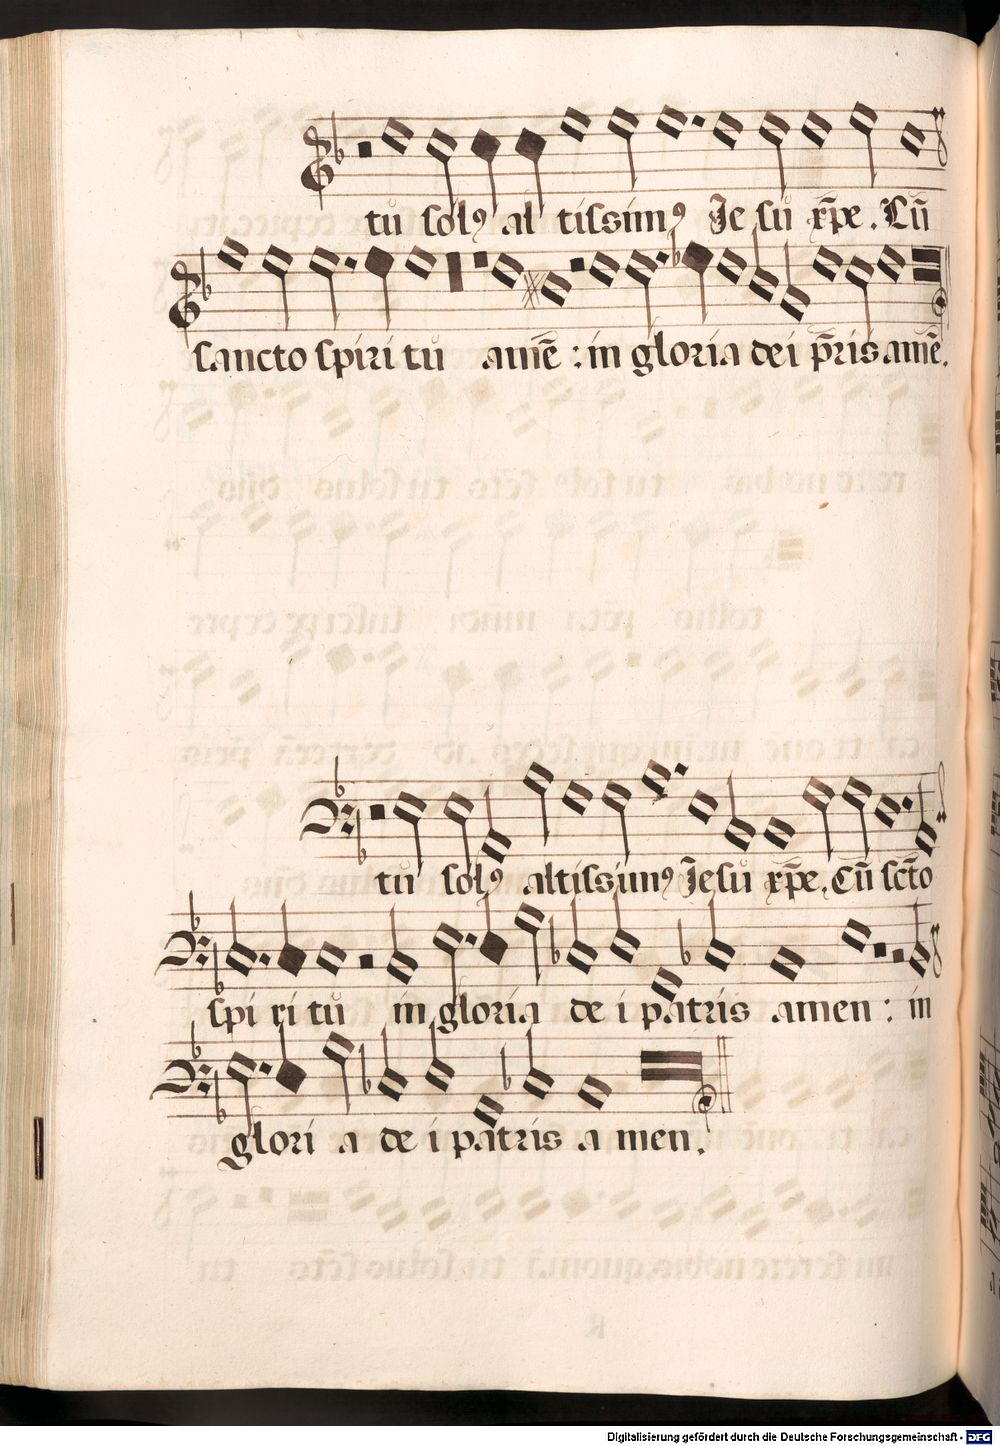 tů solꝰ al tissimꝰ Je sů xp̄e. Cū
sancto spiri tů amē : in gloria dei p̄ris amē.
tů solꝰ altissimꝰ Jesů xp̄e. Cū sc̄to
spi ri tů in gloria de i patris amen : in
glori a de i patris a men.
Digitalisierung gefördert durch die Deutsche Forschungsgemeinschaft - DFG